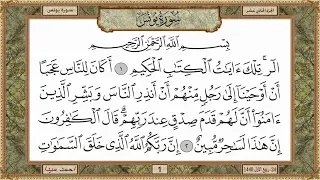 سورة يونس
الجزء الحادي عشر
سُورَةُ يُونُسَ
بِسْمِ اللَّهِ الرَّحْمَٰنِ الرَّحِيمِ
الٓر ۚ تِلْكَ ءَايَٰتُ الْكِتَٰبِ الْحَكِيمِ ١ أَكَانَ لِلنَّاسِ عَجَبًا
أَنْ أَوْحَيْنَآ إِلَىٰ رَجُلٍ مِّنْهُمْ أَنْ أَنذِرِ النَّاسَ وَبَشِّرِ الَّذِينَ
ءَامَنُوٓا۟ أَنَّ لَهُمْ قَدَمَ صِدْقٍ عِندَ رَبِّهِمْ ۗ قَالَ الْكَٰفِرُونَ
إِنَّ هَٰذَا لَسَٰحِرٌ مُّبِينٌ ٢ إِنَّ رَبَّكُمُ اللَّهُ الَّذِى خَلَقَ السَّمَٰوَٰتِ
1